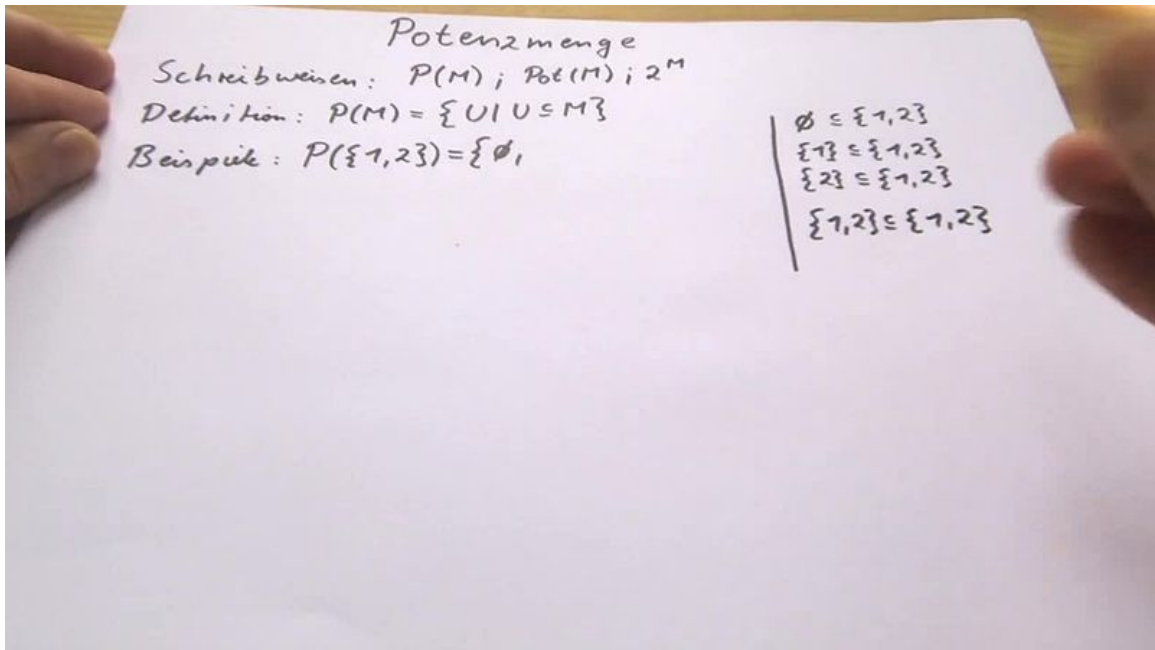 Potenzmenge
Schreibweisen: P(M); Pot(M); 2^M
Definition: P(M) = {U | U ⊆ M}
Beispiele: P({1,2})={∅,
∅ ⊆ {1,2}
{1} ⊆ {1,2}
{2} ⊆ {1,2}
{1,2} ⊆ {1,2}